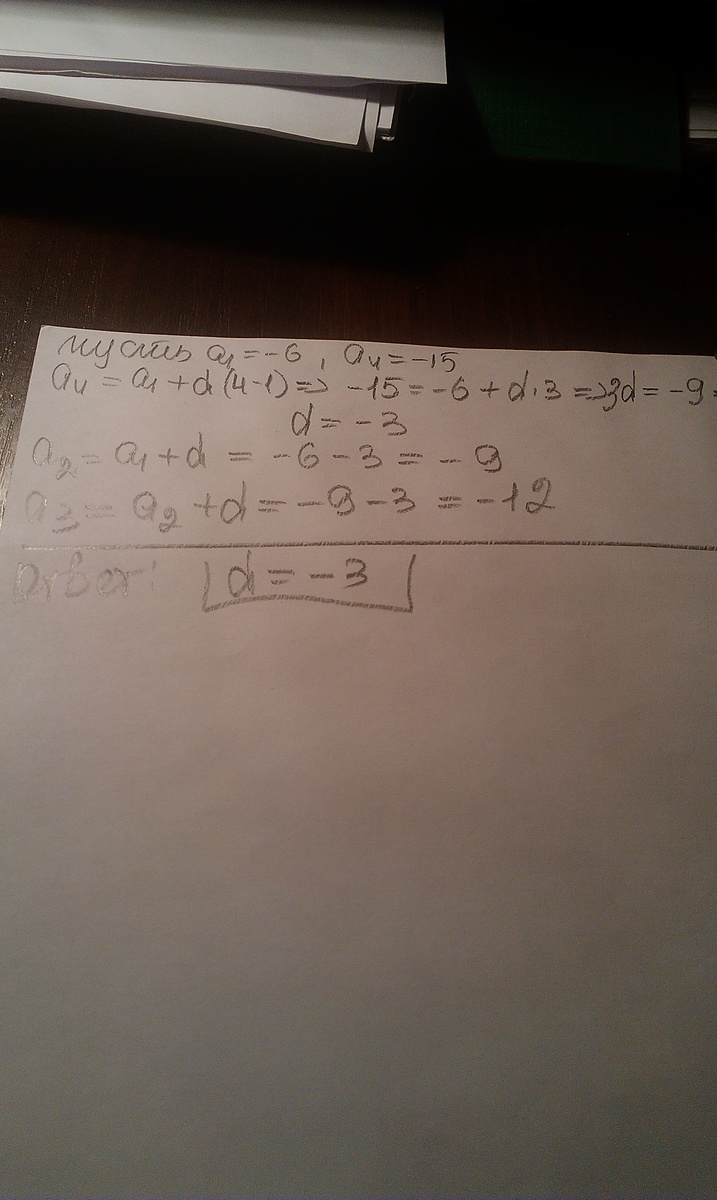 пусть a₁ = -6, a₄ = -15
a₄ = a₁ + d(4-1) => -15 = -6 + d·3 => 3d = -9 =
d = -3
a₂ = a₁ + d = -6 - 3 = -9
a₃ = a₂ + d = -9 - 3 = -12
Ответ: d = -3